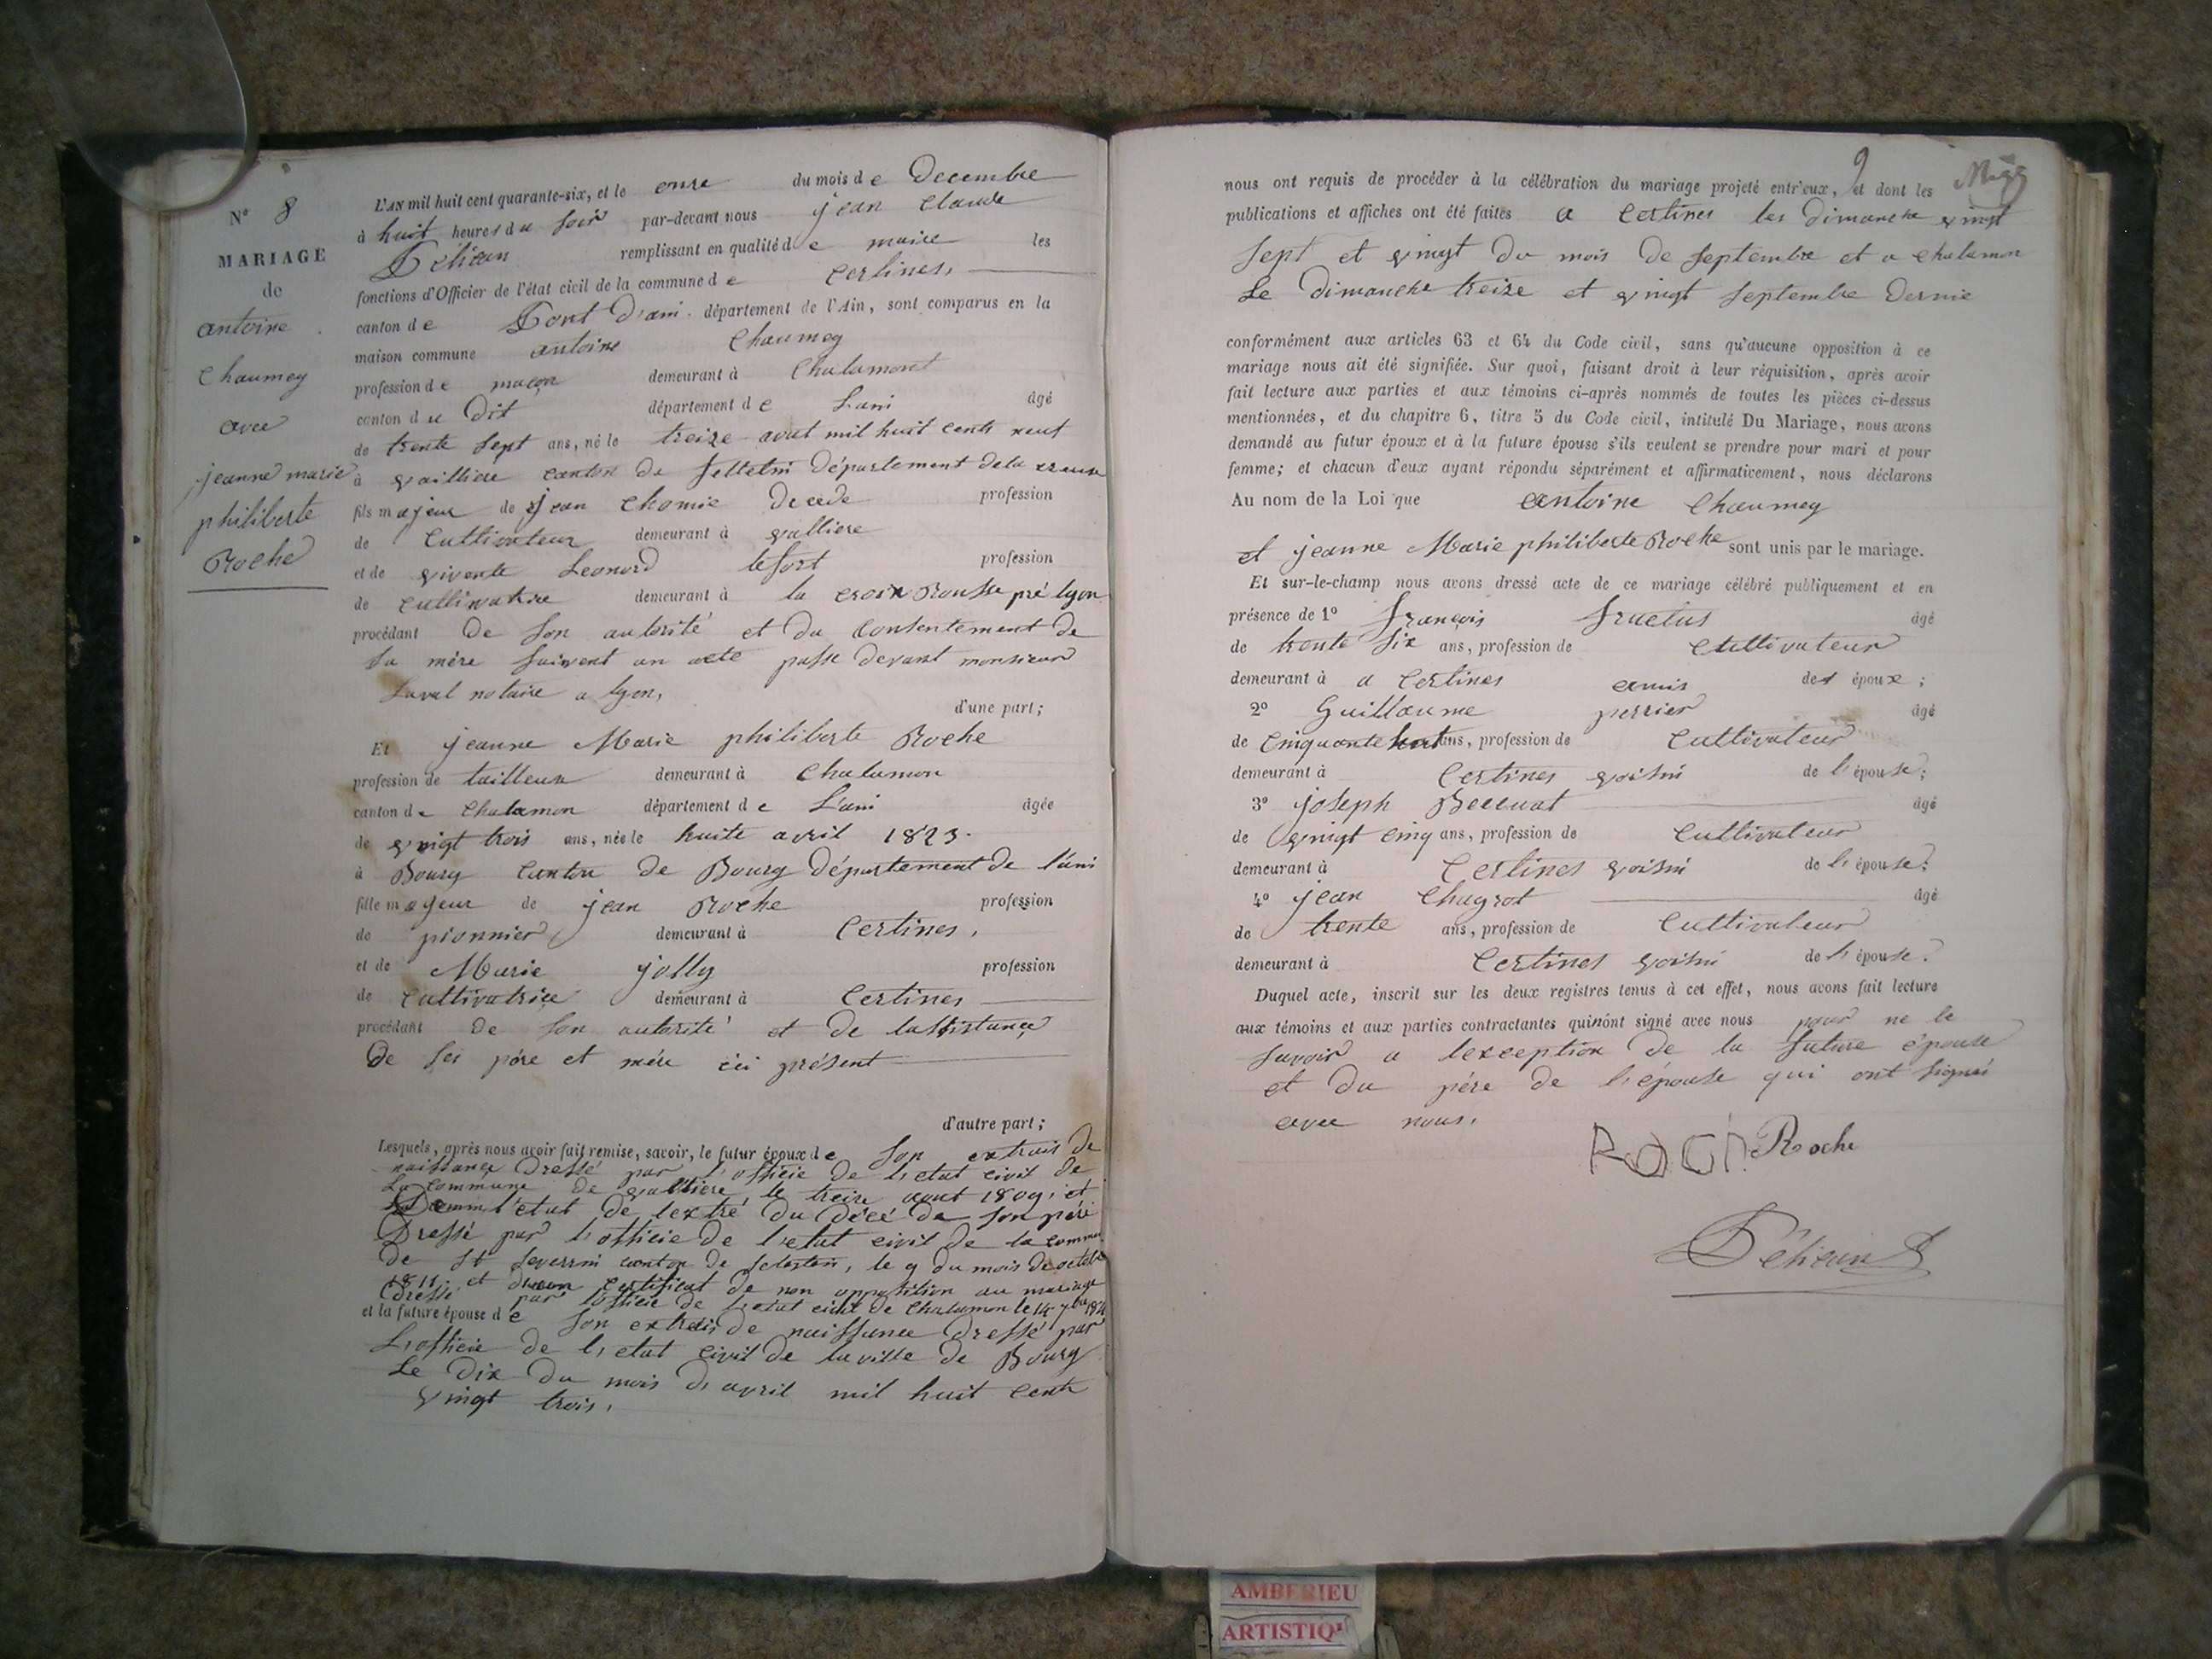 N° 8
MARIAGE
de
antoine
Chaumey
avec
jeanne marie
philiberte
Roche
L'AN mil huit cent quarante-six, et le onze du mois de Decembre
à huit heures du soir par-devant nous jean Claude
Pélican remplissant en qualité de maire les
fonctions d'Officier de l'état civil de la commune de Certines,
canton de Pont d'ain département de l'Ain, sont comparus en la
maison commune antoine Chaumey
profession de maçon demeurant à Chalamont
canton du Dit département de Lain âgé
de trente sept ans, né le treize aout mil huit cents neuf
à vailliere canton de felletin Département dela creuse
fils majeur de jean Chomie Decede profession
de Cultivateur demeurant à valliere
et de vivente Leonord lefort profession
de cultivatrice demeurant à la croix Rousse pré lyon
procédant De son autorité et du Consentement de
sa mère suivent un acte passe devant monsieur
Laval notaire a lyon,
d'une part;
Et jeanne Marie philiberte Roche
profession de tailleuse demeurant à Chalamon
canton de Chalamon département de L'ain âgée
de vingt trois ans, née le huite avril 1823.
à Bourg Canton de Bourg Département de l'ain
fille majeur de jean Roche profession
de pionnier demeurant à Certines,
et de Marie jolly profession
de Cultivatrice demeurant à Certines
procédant de son autorité et de lassistance
De ses père et mère ici présent
d'autre part;
Lesquels, après nous avoir fait remise, savoir, le futur époux de son extrais de
naissance Dressé par l'officie de l'etat civil de
La commune de valliere, le treize aout 1809, et
l'etat de lextré du décé de son père
Dressé par l'officie de l'etat civil de la commu
de St severrin canton de feletin, le 9 du mois de octobre
1811, et certificat de non opposition au mariage
dressé par lofficie de l'etat civil de Chalamon le 14 7bre
et la future épouse de son extrais de naissance dressé par
L'officie de l'etat civil de la ville de Bourg
Le Dix du mois d'avril mil huit Cents
vingt trois,
9
nous ont requis de procéder à la célébration du mariage projeté entr'eux, et dont les
publications et affiches ont été faites a Certines les dimanche vingt
sept et vingt du mois de septembre et a chalamon
Le Dimanche treize et vingt septembre Dernie
conformément aux articles 63 et 64 du Code civil, sans qu'aucune opposition à ce
mariage nous ait été signifiée. Sur quoi, faisant droit à leur réquisition, après avoir
fait lecture aux parties et aux témoins ci-après nommés de toutes les pièces ci-dessus
mentionnées, et du chapitre 6, titre 5 du Code civil, intitulé Du Mariage, nous avons
demandé au futur époux et à la future épouse s'ils veulent se prendre pour mari et pour
femme; et chacun d'eux ayant répondu séparément et affirmativement, nous déclarons
Au nom de la Loi que antoine Chaumey
et jeanne Marie philiberte Roche sont unis par le mariage.
Et sur-le-champ nous avons dressé acte de ce mariage célébré publiquement et en
présence de 1° françois fructus âgé
de trente six ans, profession de Cultivateur
demeurant à a Certines amis des époux;
2° Guillaume perrier âgé
de Cinquante huit ans, profession de Cultivateur
demeurant à Certines voisin de l'épouse;
3° joseph Beccuat âgé
de vingt cinq ans, profession de Cultivateur
demeurant à Certines voisin de l'épouse;
4° jean Chagrot âgé
de trente ans, profession de Cultivateur
demeurant à Certines voisin de l'épouse.
Duquel acte, inscrit sur les deux registres tenus à cet effet, nous avons fait lecture
aux témoins et aux parties contractantes qui n'ont signé avec nous pour ne le
savoir a lexception de la future épouse
et du père de l'épouse qui ont signés
avec nous,
Roch Roche
Pélican
AMBERIEU
ARTISTIQ